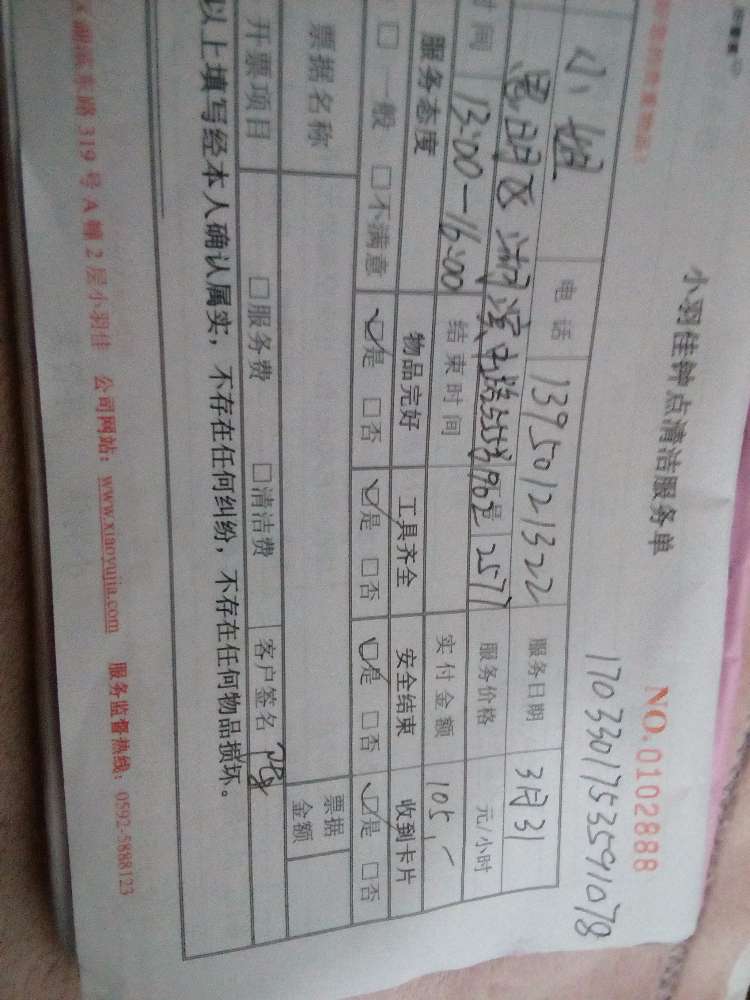 小羽佳钟点清洁服务单
NO. 0102888
1703301753591078
小姐 电话 13950121322 服务日期 3月31
思明区湖滨 2577 服务价格 元/小时
时间 13:00-16:00 结束时间 实付金额 105
服务态度 物品完好 工具齐全 安全结束 收到卡片
□一般 □不满意 □是 □否 □是 □否 □是 □否 □是 □否
票据名称 票据金额
开票项目 □服务费 □清洁费 客户签名
以上填写经本人确认属实，不存在任何纠纷，不存在任何物品损坏。
东路 319 号 A 幢 2 层小羽佳 公司网站：www.xiaoyujia.com 服务监督热线：0592-5888123